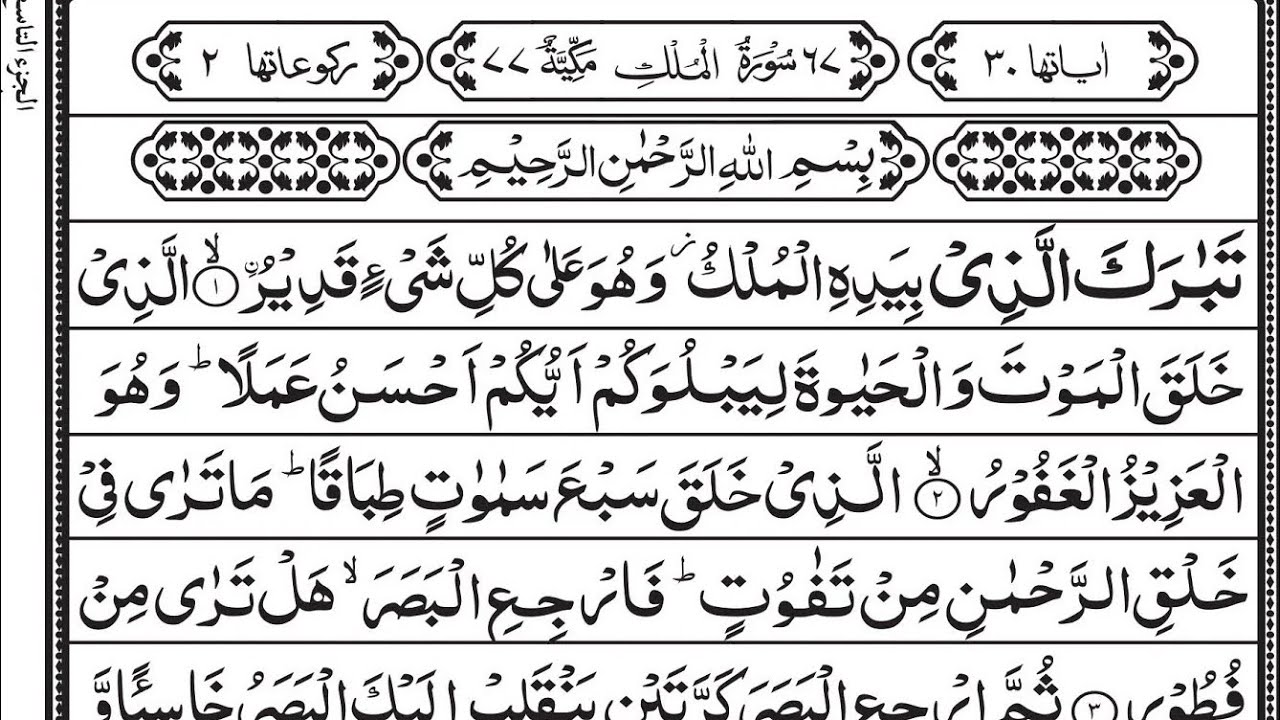 اٰياتها ٣٠ ٦٧ سُوْرَةُ الْمُلْكِ مَكِّيَّةٌ ٧٧ ركوعاتها ٢
بِسْمِ اللهِ الرَّحْمٰنِ الرَّحِيْمِ
تَبٰرَكَ الَّذِىْ بِيَدِهِ الْمُلْكُ ز وَهُوَ عَلٰى كُلِّ شَىْءٍ قَدِيْرُ ۨ ۙ ﴿١﴾ الَّذِىْ
خَلَقَ الْمَوْتَ وَالْحَيٰوةَ لِيَبْلُوَكُمْ اَيُّكُمْ اَحْسَنُ عَمَلًا ؕ وَهُوَ
الْعَزِيْزُ الْغَفُوْرُ ۙ ﴿٢﴾ الَّذِىْ خَلَقَ سَبْعَ سَمٰوٰتٍ طِبَاقًا ؕ مَا تَرٰى فِىْ
خَلْقِ الرَّحْمٰنِ مِنْ تَفٰوُتٍ ؕ فَارْجِعِ الْبَصَرَ ۙ هَلْ تَرٰى مِنْ
فُطُوْرٍ ﴿٣﴾ ثُمَّ ارْجِعِ الْبَصَرَ كَرَّتَيْنِ يَنْقَلِبْ اِلَيْكَ الْبَصَرُ خَاسِئًا وَّ
الجزء التاسع